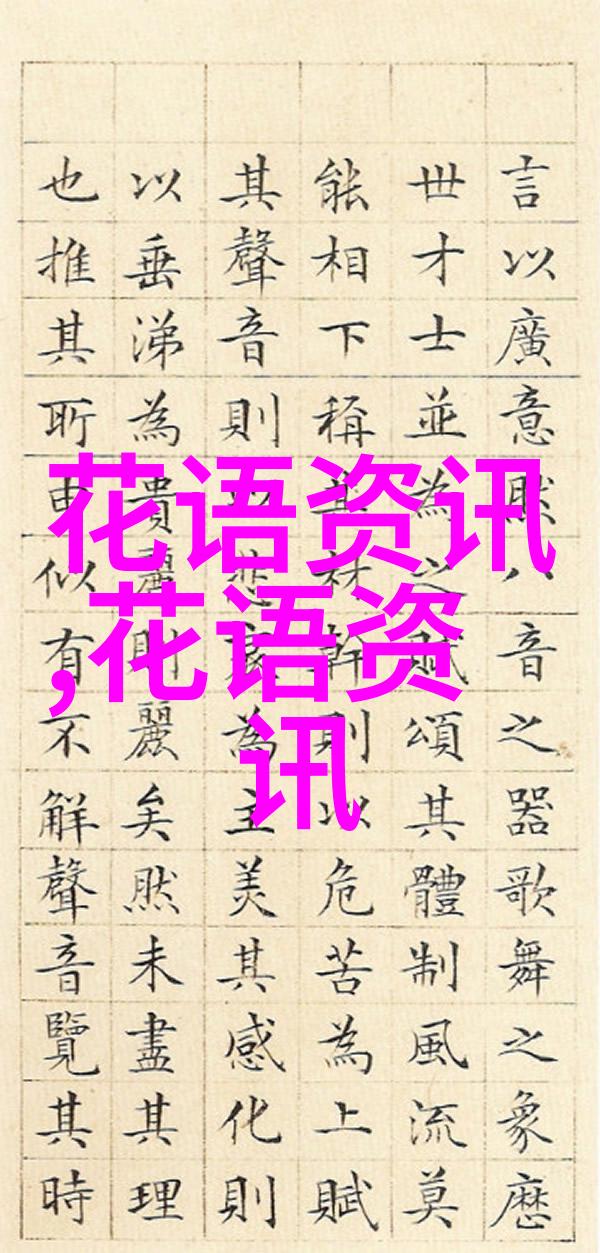 言以廣意然八音之器歌舞之象歷
世才士並為之賦頌其體制風流莫
能相下稱其材幹則以危苦為上賦
其聲音則以悲哀為主美其感化則
以垂涕為貴麗則麗矣然未盡其理
也推其所由似有不解聲音覽其時
花语资讯
,花语资
讯